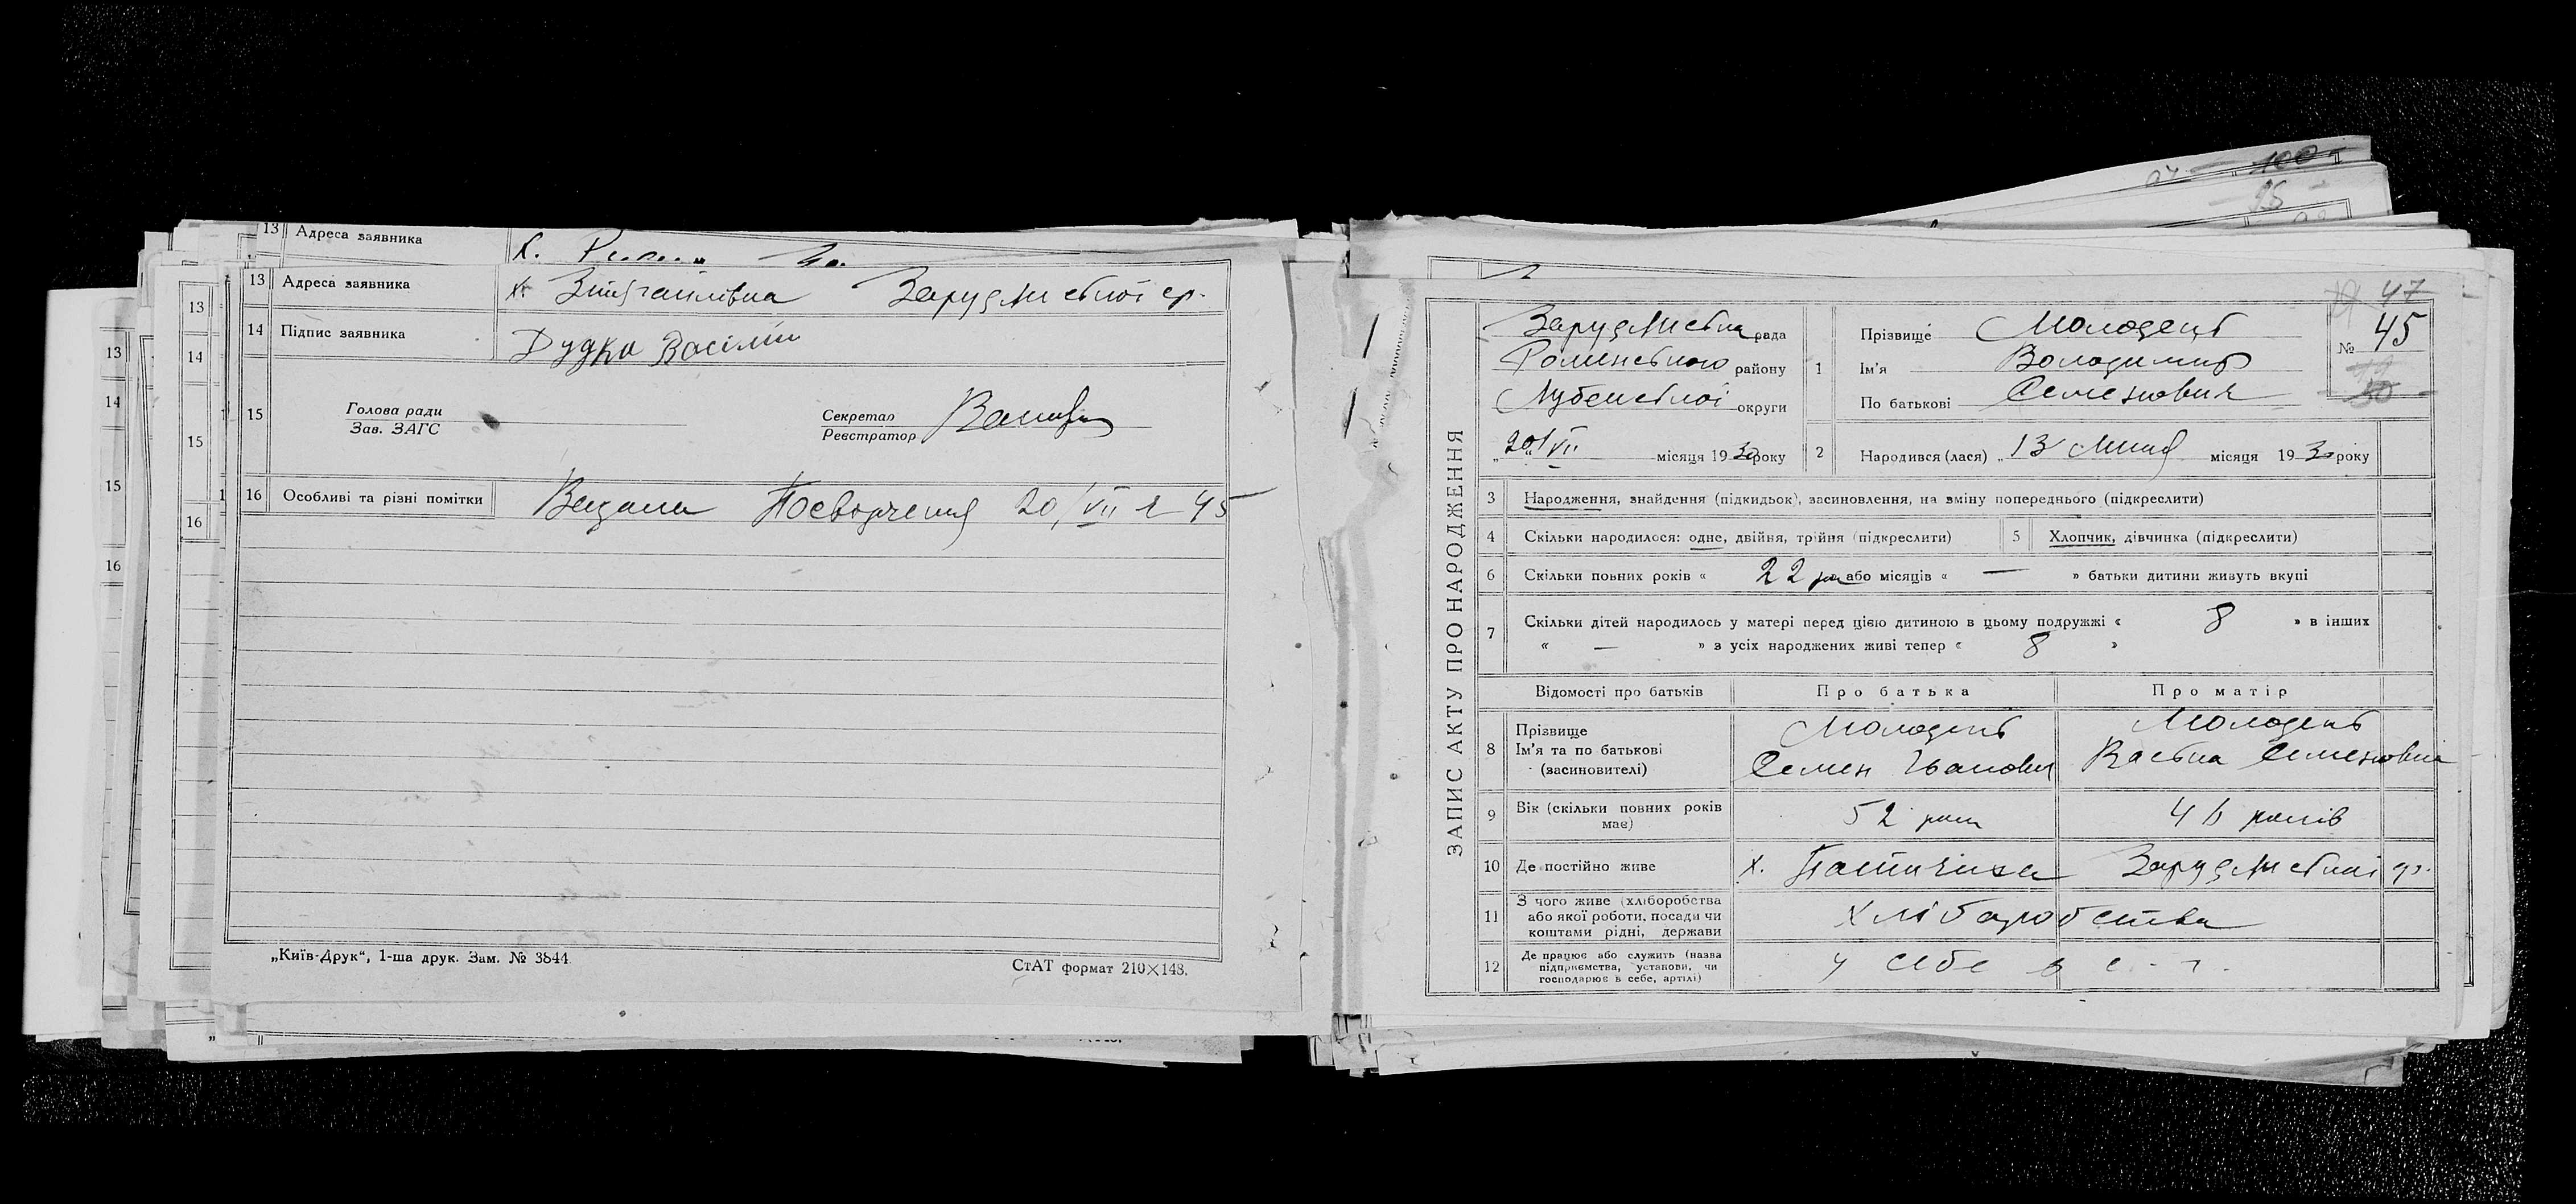 13 Адреса заявника х.
13 Адреса заявника х. Зарудянської ср.
14 Підпис заявника Дудка Василь
15 Голова ради
Зав. ЗАГС
Секретар
Реєстратор
16 Особливі та різні помітки Видана Посвідчення 20/VII № 45
„Київ-Друк“, 1-ша друк. Зам. № 3844
СтАТ формат 210×148.
13
14
15
16
13
14
15
16
100
95
ЗАПИС АКТУ ПРО НАРОДЖЕННЯ
47
№ 45
50
Зарудянська рада
Роменського району
Лубенської округи
„20/VII місяця 1930 року
1 Прізвище Молодець
Ім'я Володимир
По батькові Семенович
2 Народився (лася) „13 Липня місяця 1930 року
3 Народження, знайдення (підкидьок), засиновлення, на зміну попереднього (підкреслити)
4 Скільки народилося: одне, двійня, трійня (підкреслити)
5 Хлопчик, дівчинка (підкреслити)
6 Скільки повних років « 22 ро або місяців « — » батьки дитини живуть вкупі
7 Скільки дітей народилось у матері перед цією дитиною в цьому подружжі « 8 » в інших
« — » з усіх народжених живі тепер « 8 »
Відомості про батьків Про батька Про матір
8 Прізвище Молодець Молодець
Ім'я та по батькові
(засиновителі) Семен Іванович Семеновна
9 Вік (скільки повних років має) 52 роки 46 років
10 Де постійно живе х. Зарудянської ср.
11 З чого живе (хліборобства
або якої роботи, посади чи
коштами рідні, держави Хліборобства
12 Де працює або служить (назва
підприємства, установи, чи
господарює в себе, артілі) у себе в с. г.